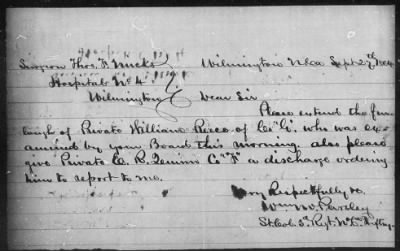 Surgeon Thos. F. Wilmington N.Ca Sept 27th 1864
Hospital No 4
Wilmington Dear Sir
Please extend the fur-
lough of Private William of Co "G", who was ex-
amined by your Board this morning, also please
give Private C. R. Quinn Co "F" a discharge ordering
him to report to me.
Very Respectfully &c
Wm M. Parsley
Lt Col 3d Regt N.C. Inftry.